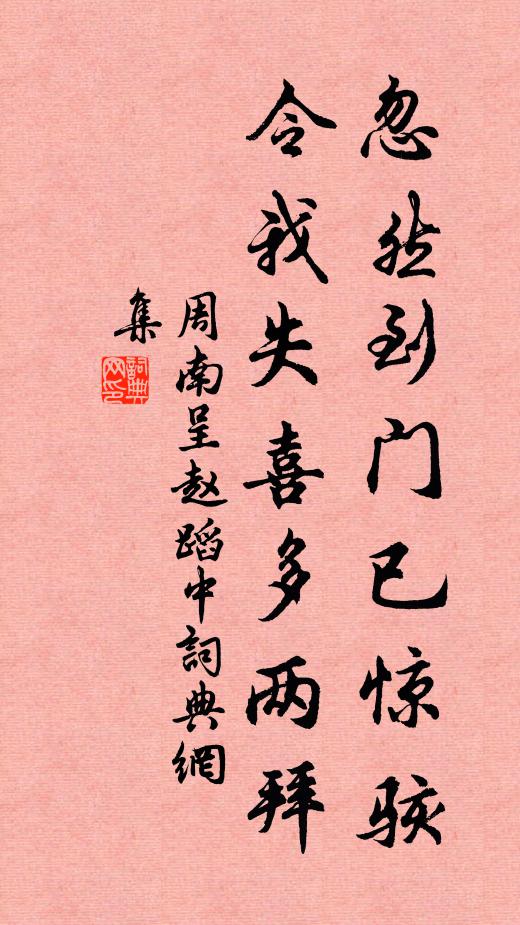 忽然到门已惊骇
令我失喜多两拜
周南呈赵蹈中詞典網
集
詞典网印